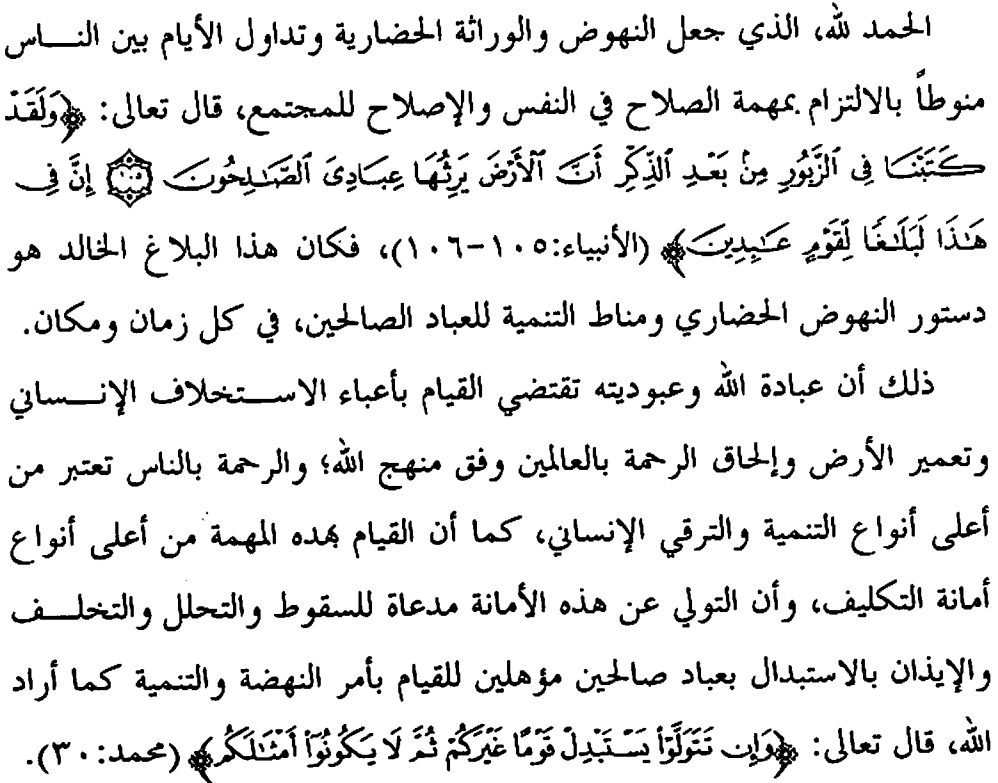 الحمد لله، الذي جعل النهوض والوراثة الحضارية وتداول الأيام بين النـــاس
منوطاً بالالتزام بمهمة الصلاح في النفس والإصلاح للمجتمع، قال تعالى: ﴿وَلَقَدْ
كَتَبْنَا فِى ٱلزَّبُورِ مِنۢ بَعْدِ ٱلذِّكْرِ أَنَّ ٱلْأَرْضَ يَرِثُهَا عِبَادِىَ ٱلصَّٰلِحُونَ ۝١٠٥ إِنَّ فِى
هَٰذَا لَبَلَٰغًا لِّقَوْمٍ عَٰبِدِينَ﴾ (الأنبياء:١٠٥-١٠٦)، فكان هذا البلاغ الخالد هو
دستور النهوض الحضاري ومناط التنمية للعباد الصالحين، في كل زمان ومكان.
ذلك أن عبادة الله وعبوديته تقتضي القيام بأعباء الاســـتخلاف الإنـــساني
وتعمير الأرض وإلحاق الرحمة بالعالمين وفق منهج الله؛ والرحمة بالناس تعتبر من
أعلى أنواع التنمية والترقي الإنساني، كما أن القيام بهده المهمة من أعلى أنواع
أمانة التكليف، وأن التولي عن هذه الأمانة مدعاة للسقوط والتحلل والتخلـــف
والإيذان بالاستبدال بعباد صالحين مؤهلين للقيام بأمر النهضة والتنمية كما أراد
الله، قال تعالى: ﴿وَإِن تَتَوَلَّوْا۟ يَسْتَبْدِلْ قَوْمًا غَيْرَكُمْ ثُمَّ لَا يَكُونُوٓا۟ أَمْثَٰلَكُم﴾ (محمد:٣٠).